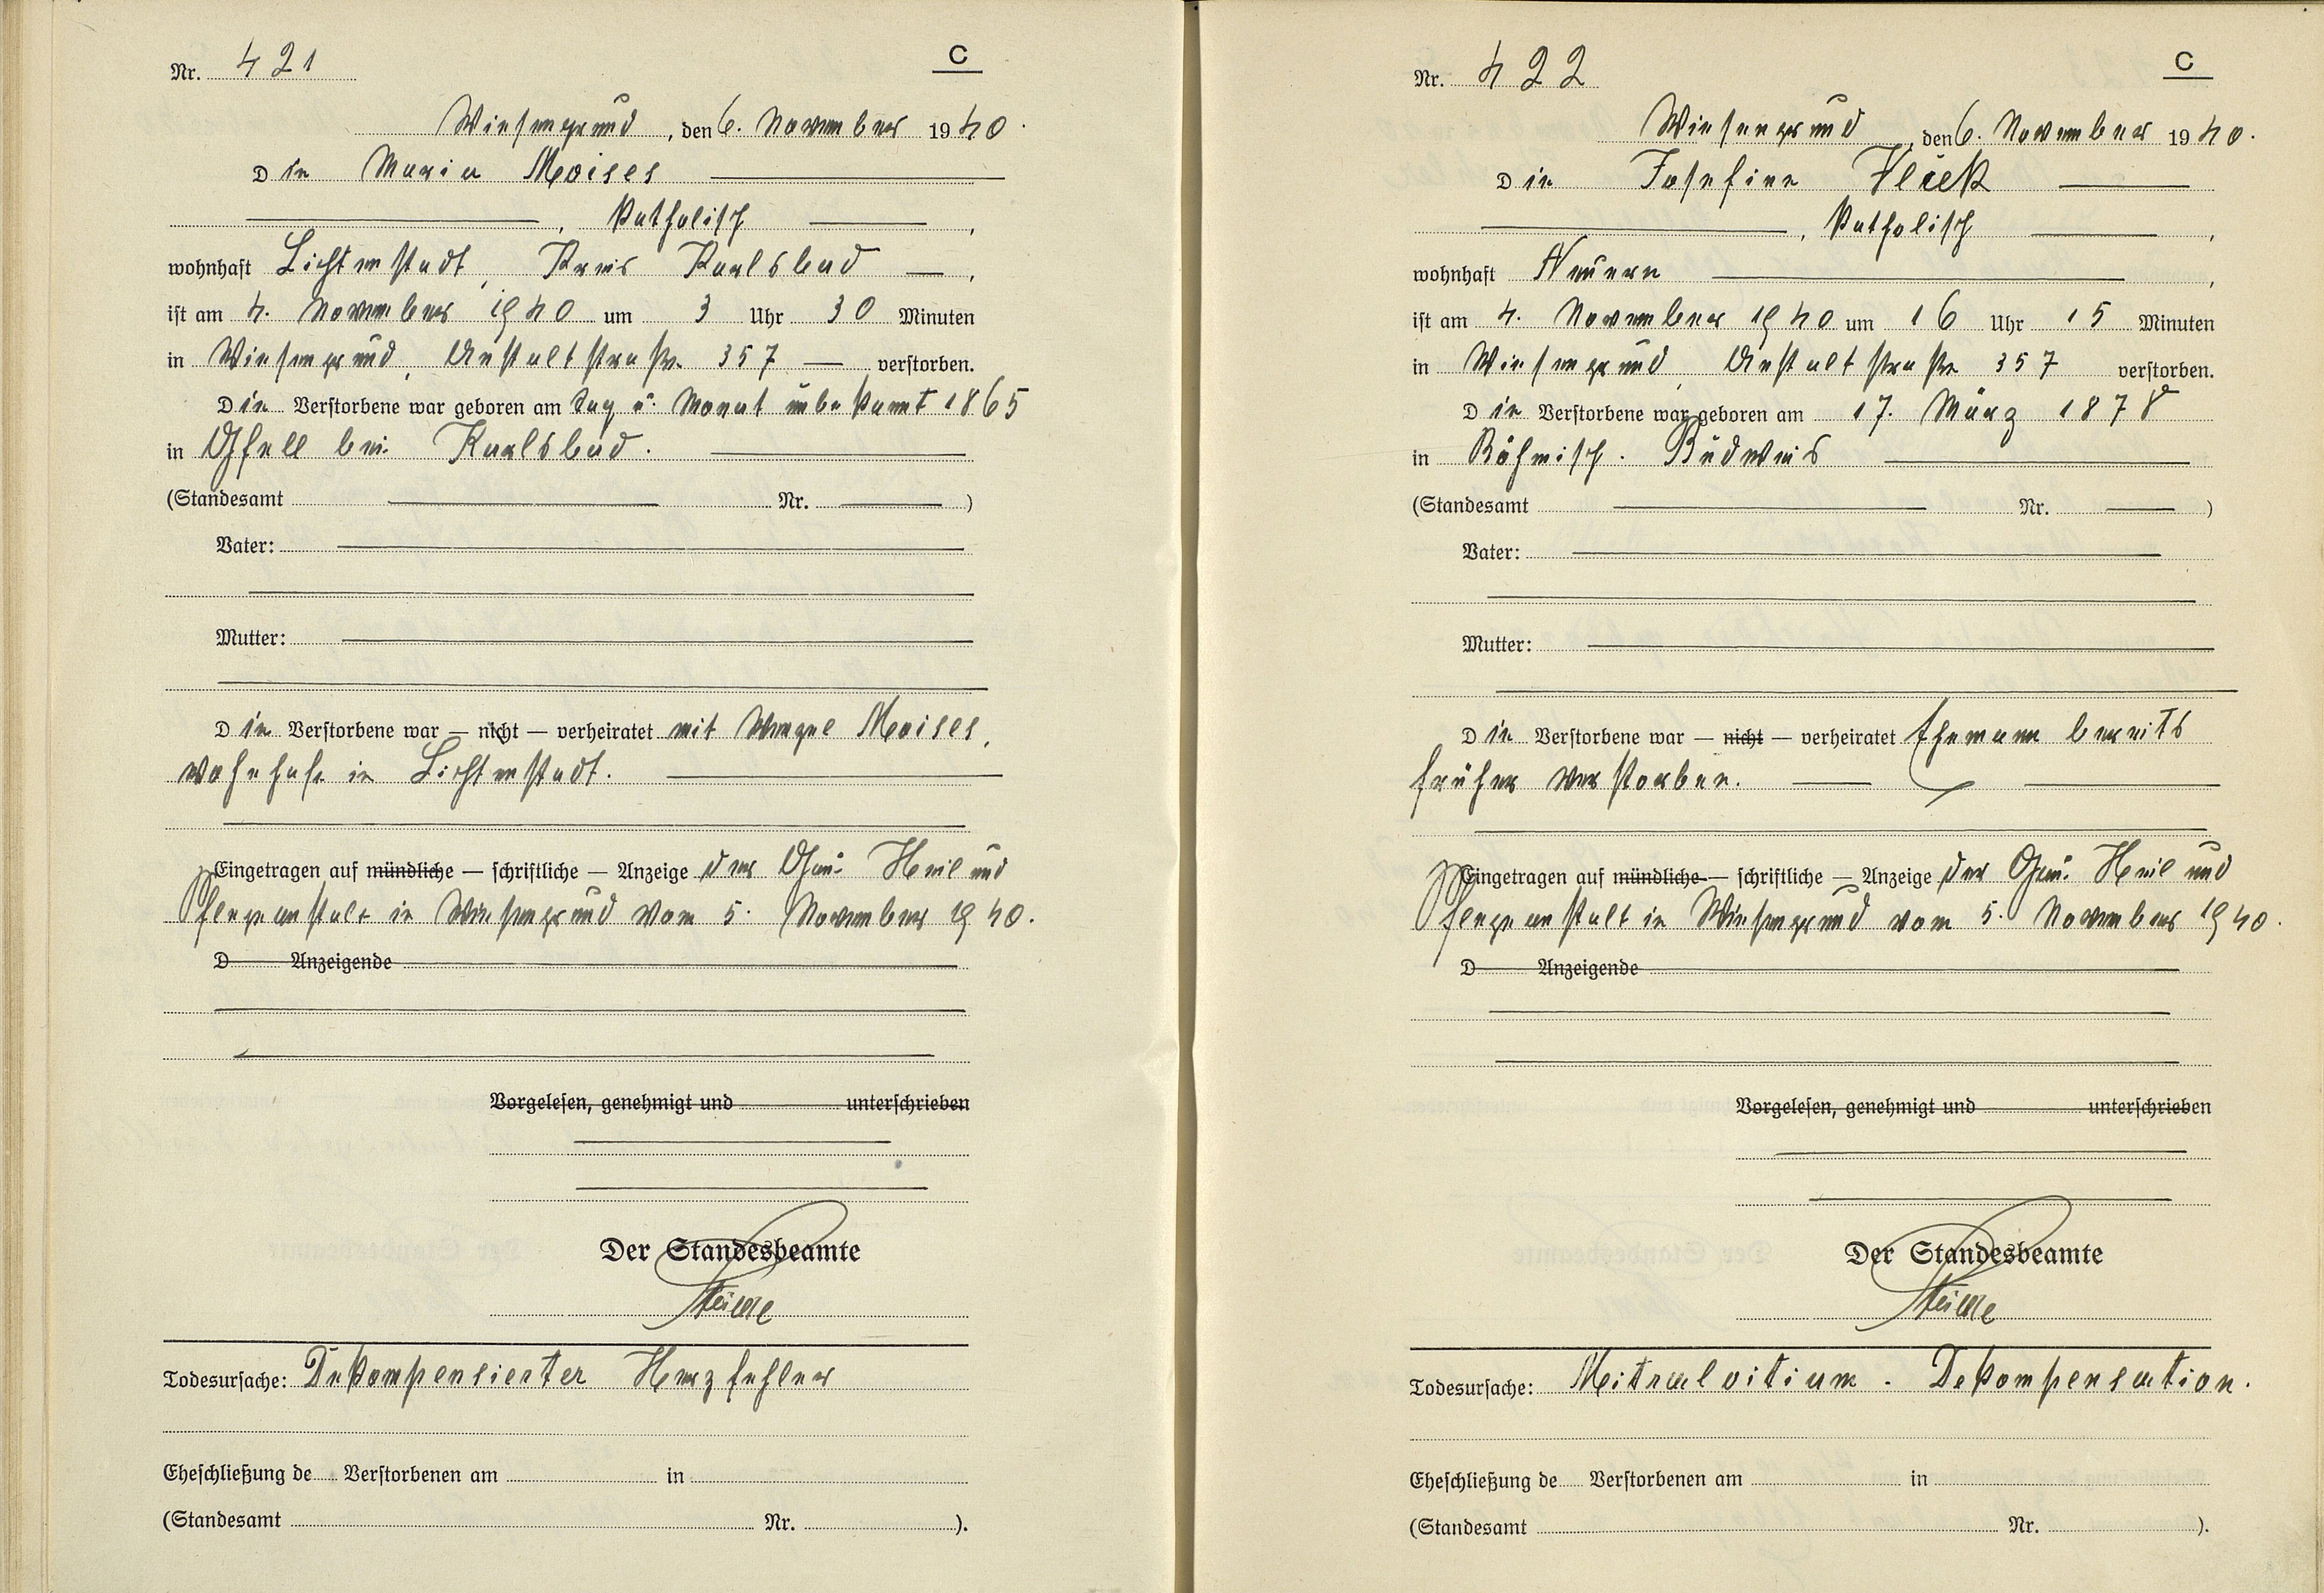 Nr. 421
C
Wiesengrund, den 6. November 1940.
Die Maria Moises
, katholisch ,
wohnhaft Lichtenstadt, Kreis Karlsbad ,
ist am 4. November 1940 um 3 Uhr 30 Minuten
in Wiesengrund, Anstaltstraße 357 verstorben.
Die Verstorbene war geboren am Tag u. Monat unbekannt 1865
in Gfell bei Karlsbad.
(Standesamt Nr. )
Vater:
Mutter:
Die Verstorbene war — nicht — verheiratet mit Wenzel Moises,
wohnhaft in Lichtenstadt.
Eingetragen auf mündliche — schriftliche — Anzeige der Gau- Heil und
Pflegeanstalt in Wiesengrund vom 5. November 1940.
D Anzeigende
Vorgelesen, genehmigt und unterschrieben
Der Standesbeamte
Todesursache: Dekompensierter Herzfehler
Eheschließung de Verstorbenen am in
(Standesamt Nr. ).
Nr. 422
C
Wiesengrund, den 6. November 1940.
Die Josefine Vlček
, katholisch ,
wohnhaft Neuern ,
ist am 4. November 1940 um 16 Uhr 15 Minuten
in Wiesengrund, Anstaltstraße 357 verstorben.
Die Verstorbene war geboren am 17. März 1878
in Böhmisch. Budweis
(Standesamt Nr. )
Vater:
Mutter:
Die Verstorbene war — nicht — verheiratet Ehemann bereits
früher verstorben.
Eingetragen auf mündliche — schriftliche — Anzeige der Gau- Heil und
Pflegeanstalt in Wiesengrund vom 5. November 1940.
D Anzeigende
Vorgelesen, genehmigt und unterschrieben
Der Standesbeamte
Todesursache: Mitralvitium - Dekompensation.
Eheschließung de Verstorbenen am in
(Standesamt Nr. ).